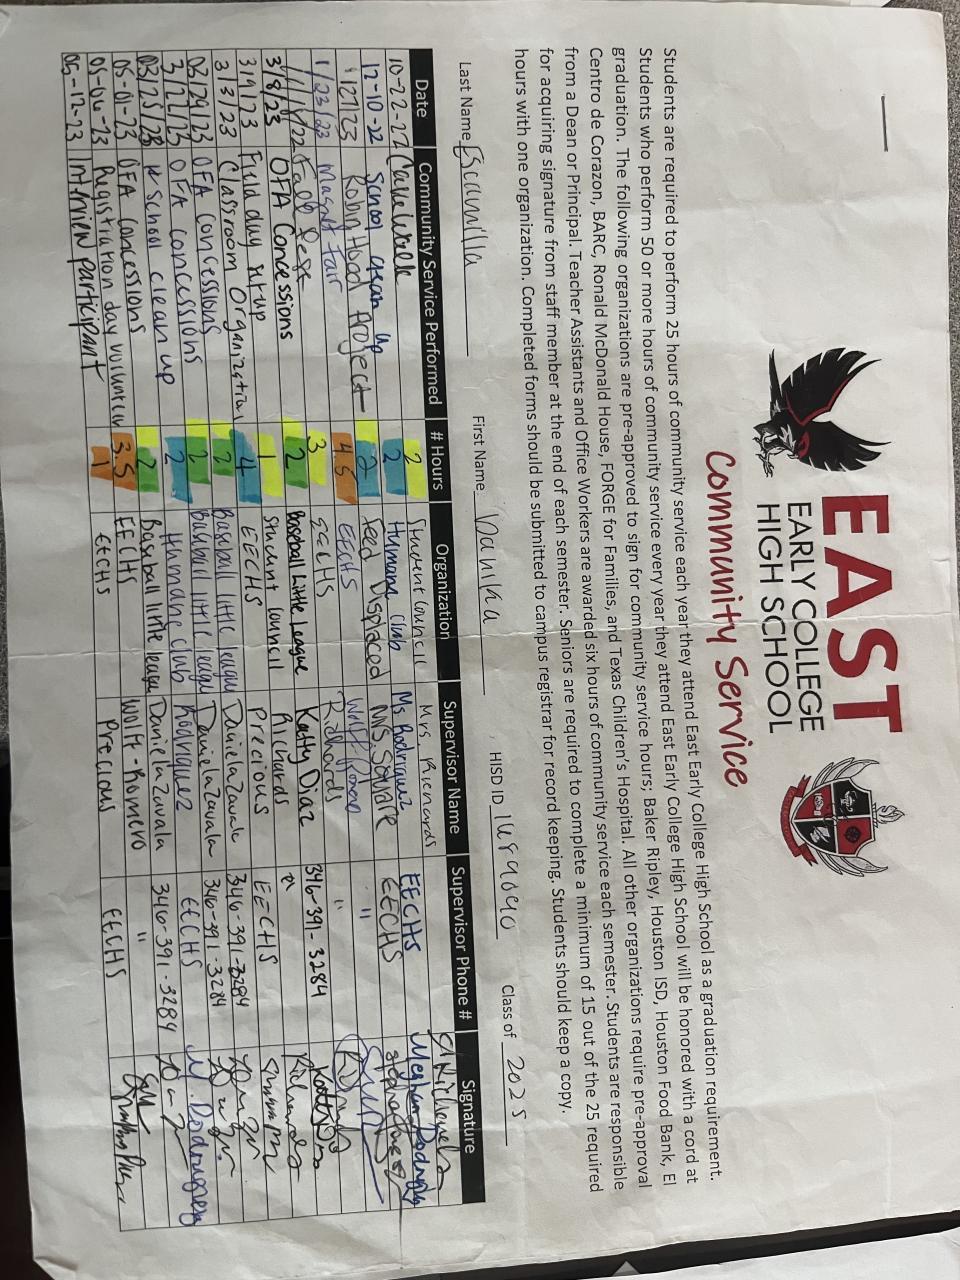 EAST
EARLY COLLEGE
HIGH SCHOOL
Community Service
Students are required to perform 25 hours of community service each year they attend East Early College High School as a graduation requirement.
Students who perform 50 or more hours of community service every year they attend East Early College High School will be honored with a cord at
graduation. The following organizations are pre-approved to sign for community service hours; Baker Ripley, Houston ISD, Houston Food Bank, El
Centro de Corazon, BARC, Ronald McDonald House, FORGE for Families, and Texas Children's Hospital. All other organizations require pre-approval
from a Dean or Principal. Teacher Assistants and Office Workers are awarded six hours of community service each semester. Students are responsible
for acquiring signature from staff member at the end of each semester. Seniors are required to complete a minimum of 15 out of the 25 required
hours with one organization. Completed forms should be submitted to campus registrar for record keeping. Students should keep a copy.
Last Name Escamilla First Name Danika HISD ID 1489040 Class of 2025
Date Community Service Performed # Hours Organization Supervisor Name Supervisor Phone # Signature
10-22-22 Cake Walk 2 Student Council Mrs. Richards EECHS
12-10-22 School clean up 2 Humane Club Ms Rodriguez EECHS
1/21/23 Robin Hood Project 2 Feed Displaced Mrs. "
1/23/23 Magnet Fair 4.5 EECHS "
Fall Fest 3 EECHS Richards
3/8/23 OFA Concessions 2 Baseball Little League Katty Diaz 346-391-3284
3/9/23 Field day set up 1 Student Council Richards "
3/3/23 Classroom Organization 4 EECHS Precious EECHS
03/29/23 OFA Concessions 2 Baseball little league Daniela Zavala 346-391-3284
3/22/23 OFA Concessions 2 Baseball little league Daniela Zavala 346-391-3284
03/25/23 school clean up 2 Humane Club Rodriguez EECHS
05-01-23 OFA Concessions 2 Baseball little league Daniela Zavala 346-391-3284
05-06-23 Registration day volunteer 3.5 EECHS Wolff-Romero "
05-12-23 Interview participant 1 EECHS Precious EECHS